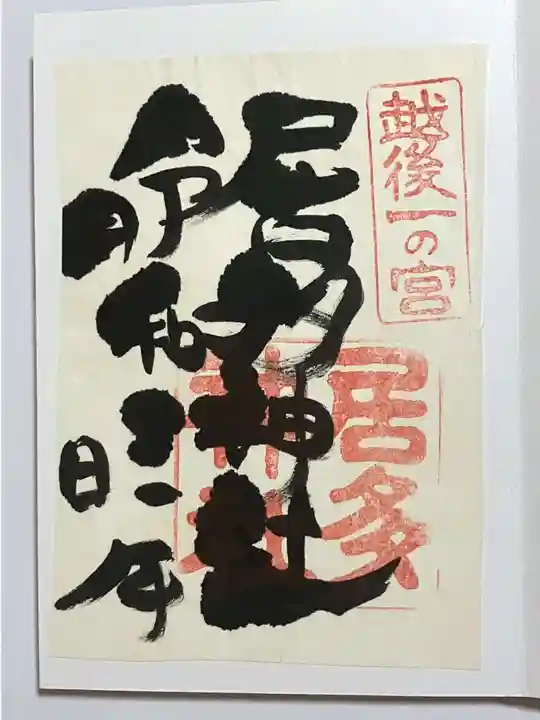 越後一の宮
居多神社
居多
神社
令和三年
月
日